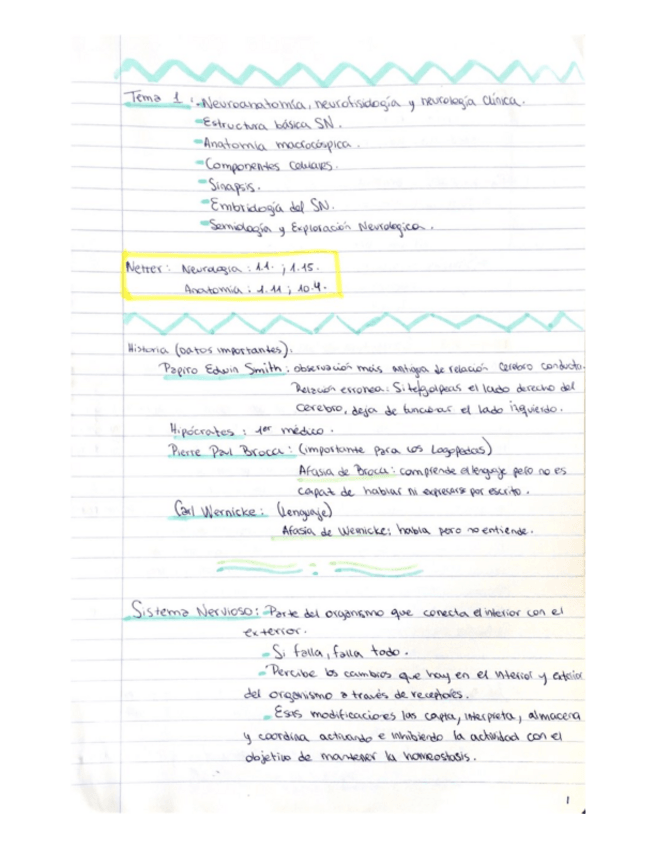 Tema 1: -Neuroanatomía, neurofisiología y neurología clínica.
-Estructura básica SN.
-Anatomía macrocóspica.
-Componentes celulares.
-Sinapsis.
-Embriología del SN.
-Semiología y Exploración Neurologica.
Netter: Neurología: 1.1. ; 1.15.
Anatomía: 1.11 ; 10.4.
Historia (Datos importantes).
Papiro Edwin Smith: observación más antigua de relación cerebro conducta.
Relación erronea: Si te golpeas el lado derecho del
cerebro, deja de funcionar el lado izquierdo.
Hipócrates: 1er médico.
Pierre Paul Broca: (importante para los Logopedas)
Afasia de Broca: comprende el lenguaje pero no es
capaz de hablar ni expresarse por escrito.
Carl Wernicke: (lenguaje)
Afasia de Wernicke: habla pero no entiende.
Sistema Nervioso: -Parte del organismo que conecta el interior con el
exterior.
-Si falla, falla todo.
-Percibe los cambios que hay en el interior y exterior
del organismo a través de receptores.
-Esas modificaciones las capta, interpreta, almacena
y coordina activando e inhibiendo la actividad con el
objetivo de mantener la homeostasis.
1